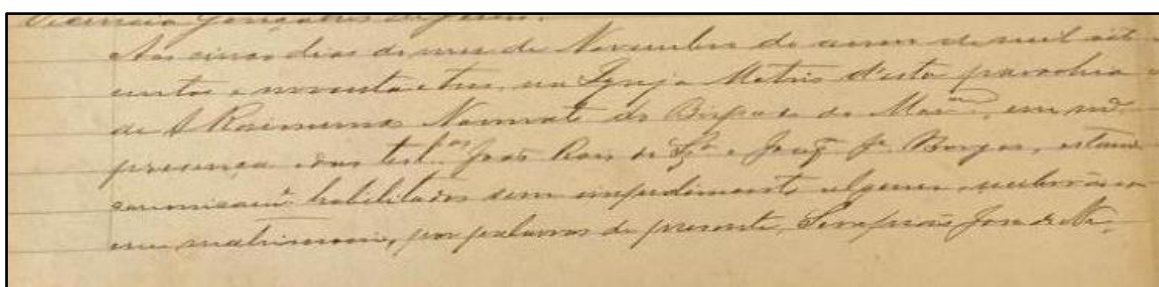 Vicencia Gonçalves de Jesus.
Aos cinco dias do mes de Novembro do anno de mil oito
centos e noventa e tres, na Igreja Matriz d'esta parochia
de S Raimundo Nonnato do Bispado do Mar.am, em m.a
presença e das test.as João Rois de S.a e Joaq.m Je. Borges, estando
canonicam.e habilitados sem impedimento algum, receberão-se
em matrimonio, por palavras de presente, Serapião José de